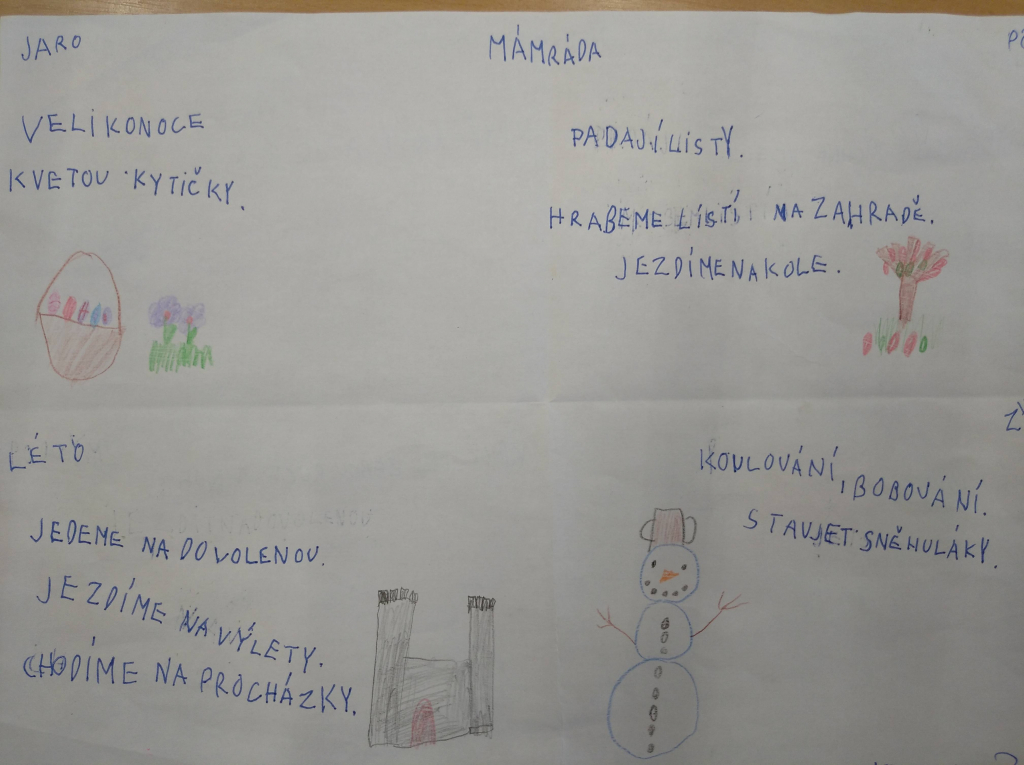 JARO
MÁMRÁDA
VELIKONOCE
KVETOU KYTIČKY.
PADAJÍ LISTY.
HRABEME LÍSTÍ NA ZAHRADĚ.
JEZDÍMENAKOLE.
LÉTO
JEDEME NA DOVOLENOU.
JEZDÍME NA VÝLETY.
CHODÍME NA PROCHÁZKY.
KOULOVÁNÍ, BOBOVÁNÍ.
STAVJET SNĚHULÁKY.